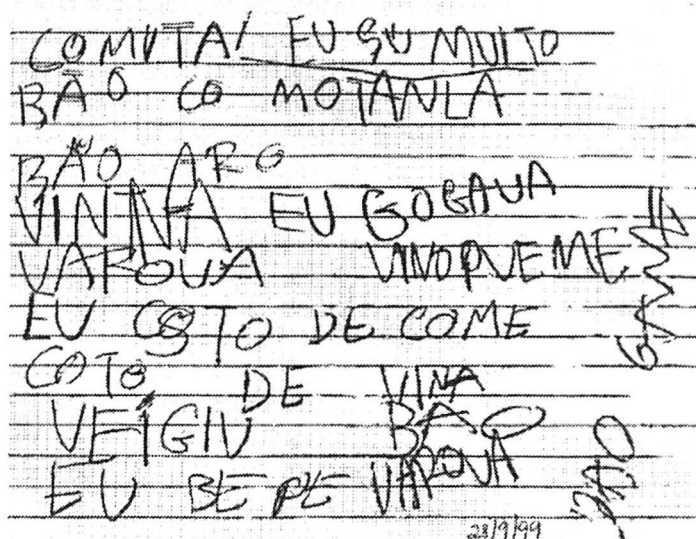 COMUTAI EU SU MUITO
BÃO CO MOTANLA
BÃO ARO
VINNA EU GOGAVA
VAROVA VINO PVEME
EU GSTO DE COME
GOTO DE VINA
VEÍGIU BÃO
EU BE PE VAROVA
28/9/99